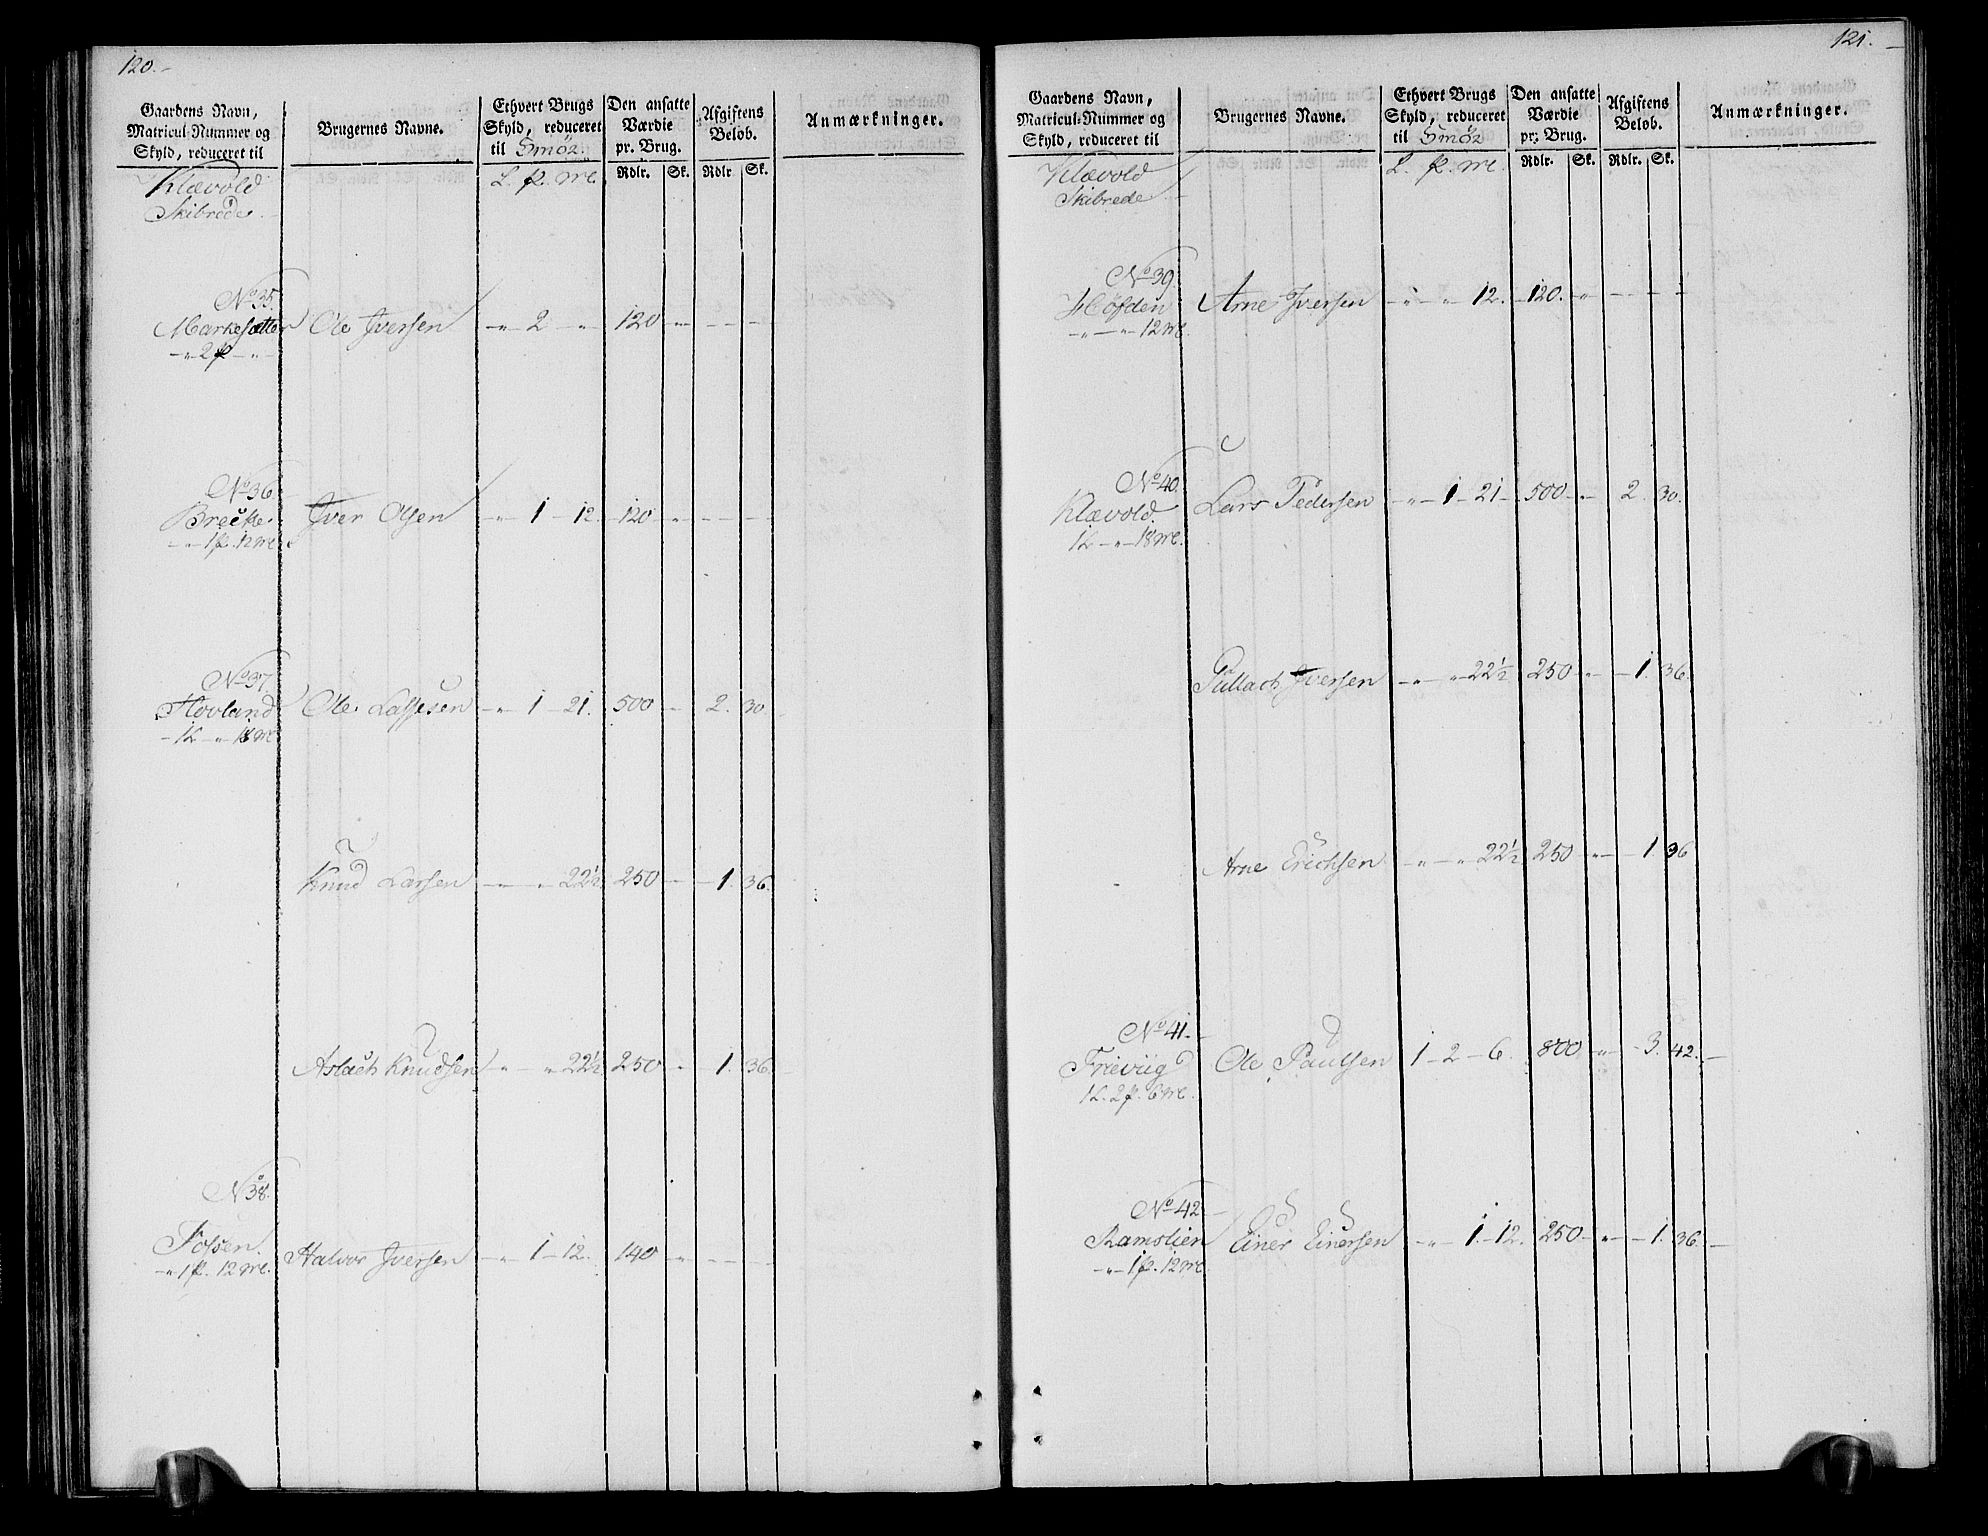 120.-
Gaardens Navn,
Matricul-Nummer og
Skyld, reduceret til
Brugernes Navne.
Ethvert Brugs
Skyld, reduceret
til Smör.
Den ansatte
Værdie
pr. Brug.
Afgiftens
Belob.
Anmærkninger.
L. p. mk.
Rdlr. Sk. Rdlr Sk.
Klævold
Skibrede
No 35.
Markesætter Ole Iversen -"- 2 -"- 120 -"- - - -
-"- 2 p -"-
No 36.
Brecke. Iver Olsen -"- 1 - 12. 120 -"- - - -
-"- 1 p. 12 mk.
No 37.
Hovland Ole Lassesen -"- 1 - 21. 500 -"- 2. 30.
- 1 L -"- 18 mk.
Knud Larsen -"- -"- 22½ 250 -"- 1. 36.
Aslach Knudsen -"- -"- 22½ 250 -"- 1. 36.
No 38.
Folsen. Halvor Iversen -"- 1 - 12. 140 -"- - - -
-"- 1 p. 12 mk.
121.-
Gaardens Navn,
Matricul-Nummer og
Skyld, reduceret til
Brugernes Navne.
Ethvert Brugs
Skyld, reduceret
til Smör
Den ansatte
Værdie
pr. Brug.
Afgiftens
Belob.
Anmærkninger.
L. p. mk.
Rdlr. Sk. Rdlr. Sk.
Klævold
Skibrede
No 39.
Höfden Arne Iversen -"- -"- 12. 120. -"- - - -
-"- -"- 12 mk.
No 40.
Klævold. Lars Pedersen -"- 1 - 21 - 500 -"- 2. 30.
1 L -"- 18 mk.
Tullach Iversen -"- -"- 22½ 250 -"- 1. 36.
Arne Erichsen -"- -"- 22½ 250 -"- 1. 36
No 41.
Frieviig Ole Paulsen 1 - 2 - 6. 800 -"- 3. 42.
1 L. 2 p. 6 mk.
No 42
Ramslien Einer Einersen -"- 1. - 12. 250 -"- 1. 36.
-"- 1 p. 12 mk